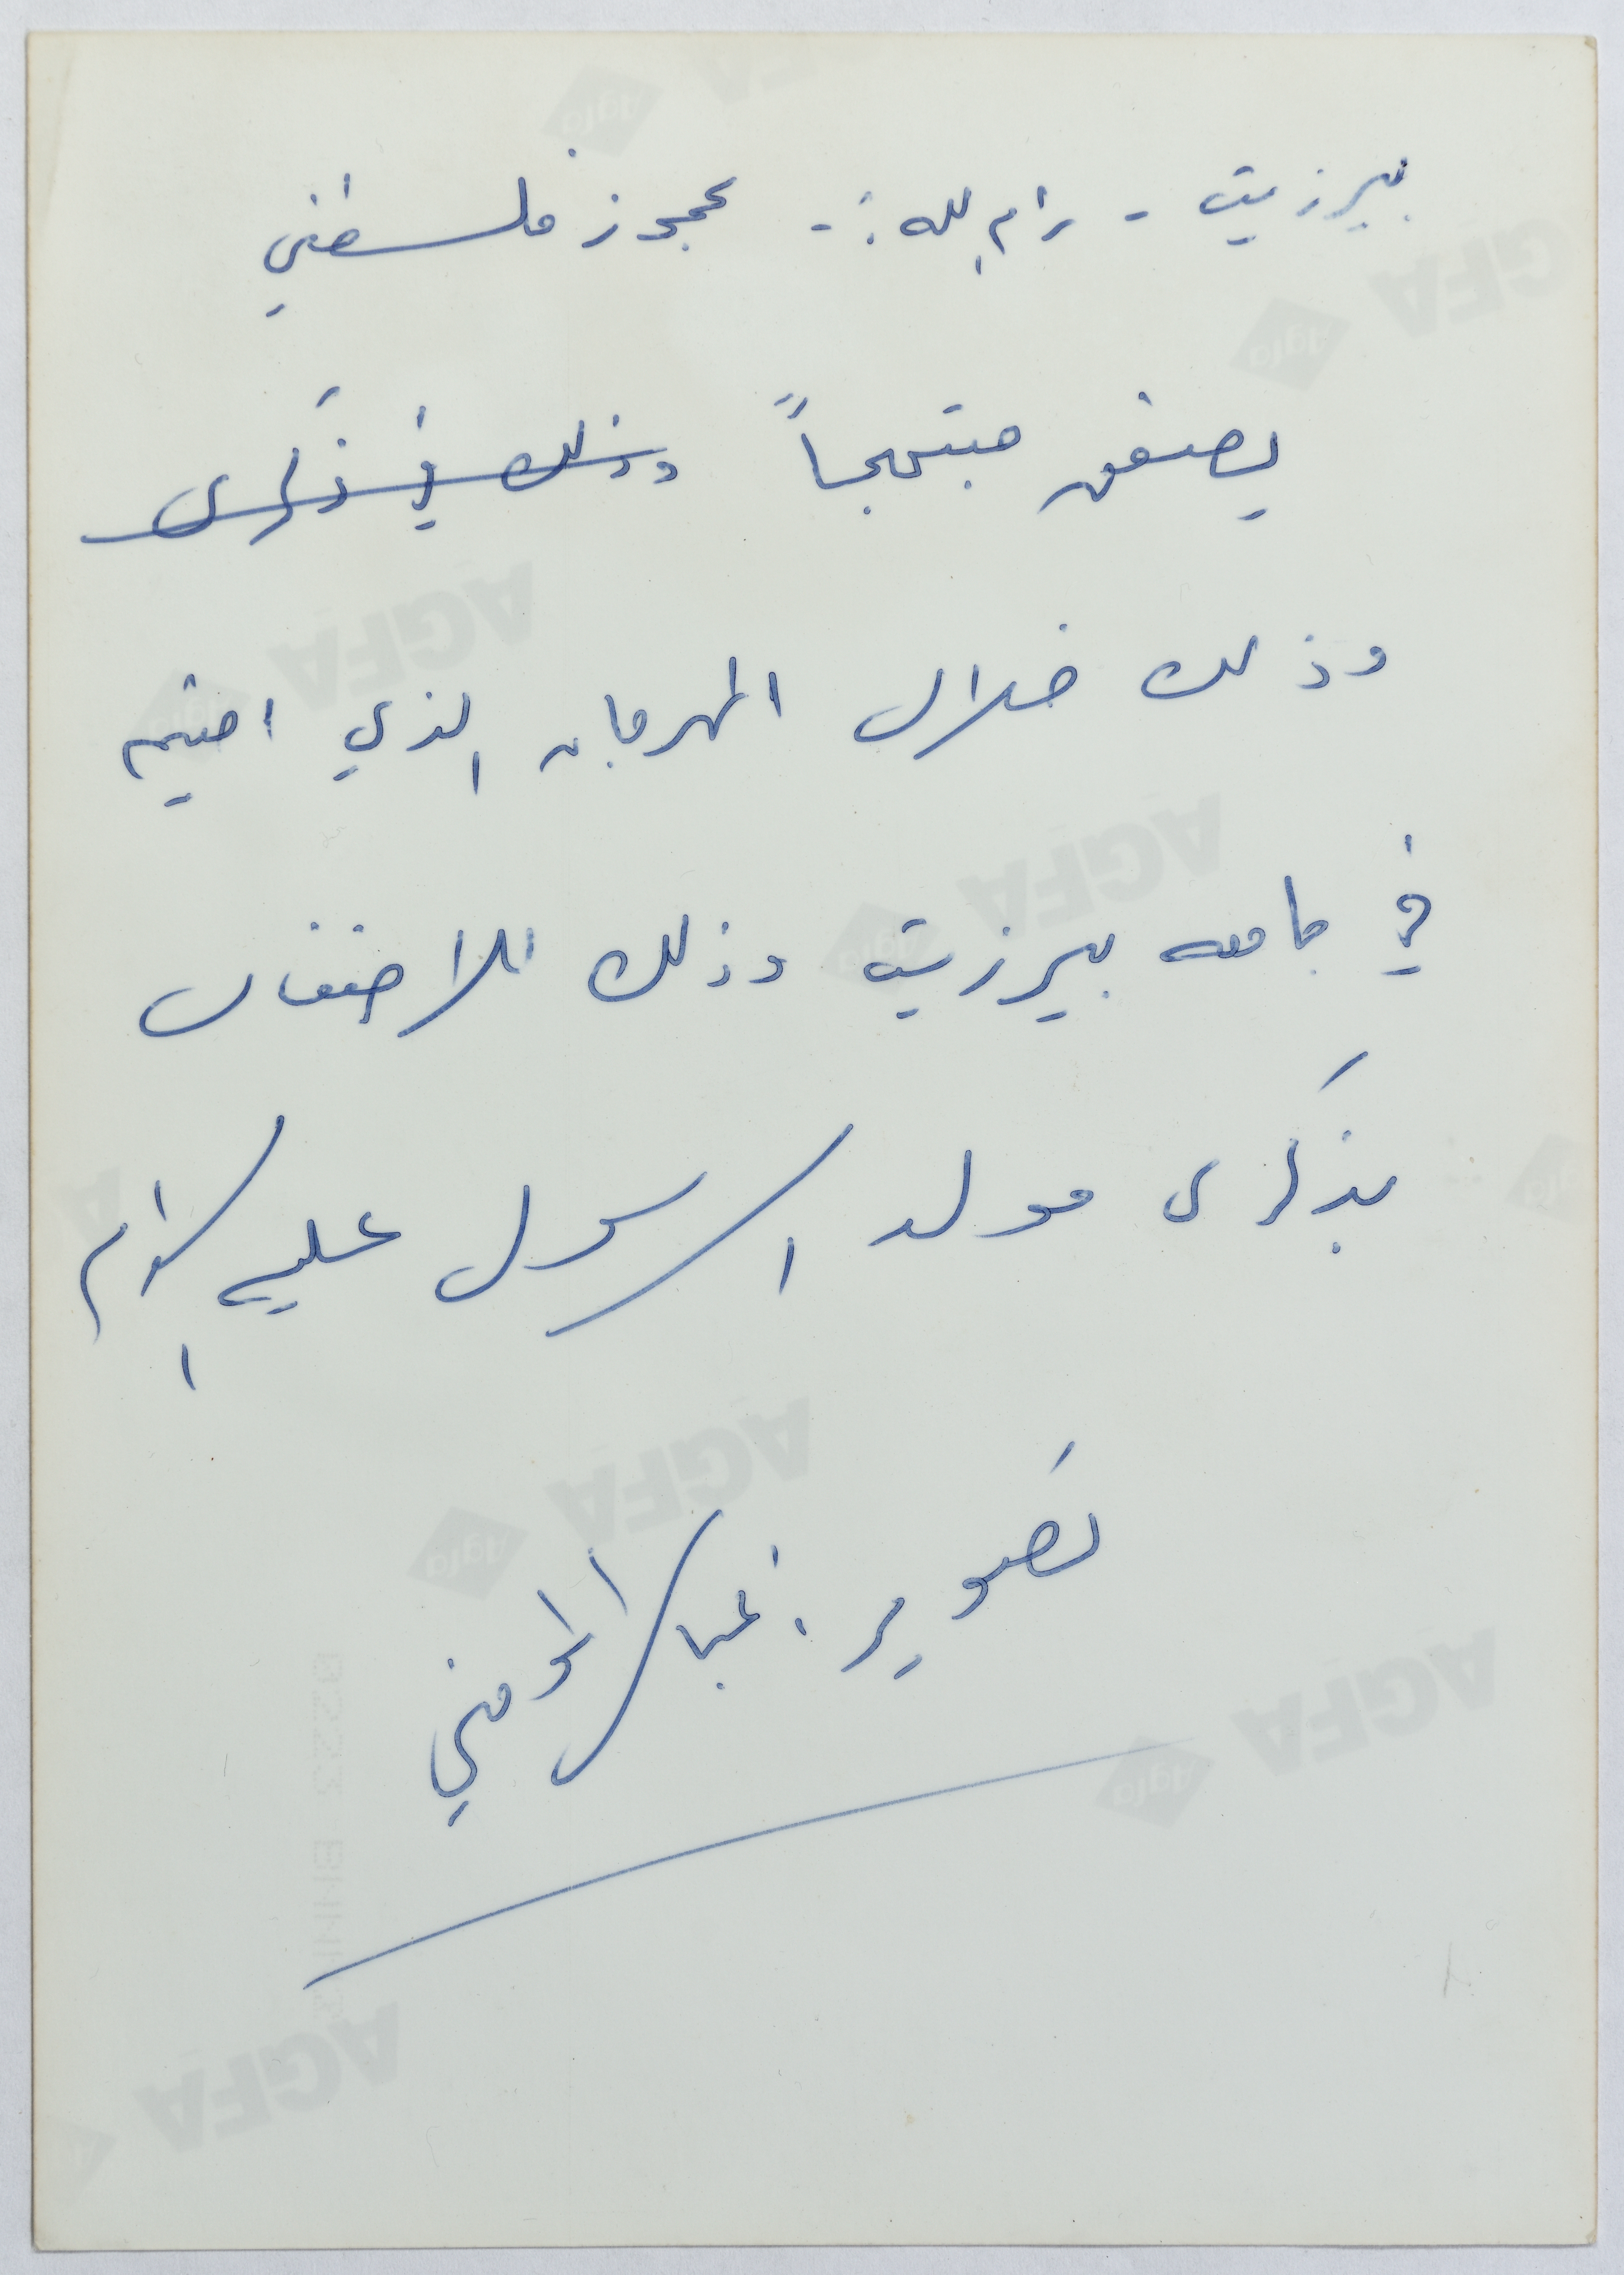 بيرزيت - رام الله :- عجوز فلسطيني
يصفق مبتهجاً وذلك في ذكرى
وذلك خلال المهرجان الذي اقيم
في جامعه بيرزيت وذلك للاحتفال
بذكرى مولد الرسول عليه السلام
تصوير : عباس المومني